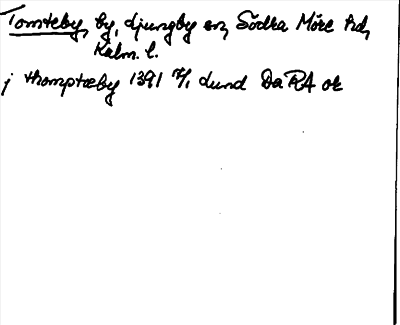 Tomteby, by, Ljungby sn, Södra Möre hd,
Kalm. l.
j thomptæby 1391 7/1 Lund DaRA or